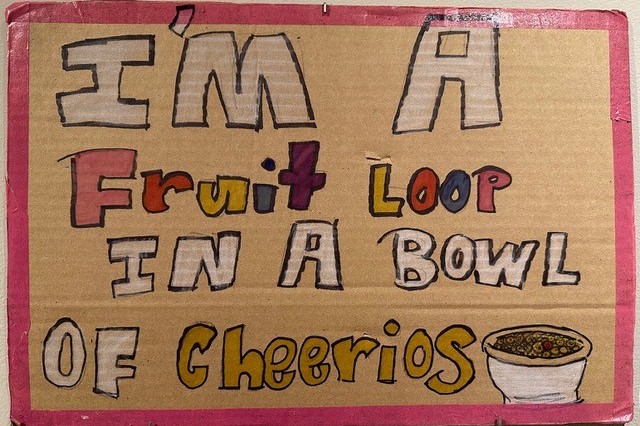 I'M A
Fruit LOOP
IN A BOWL
OF Cheerios